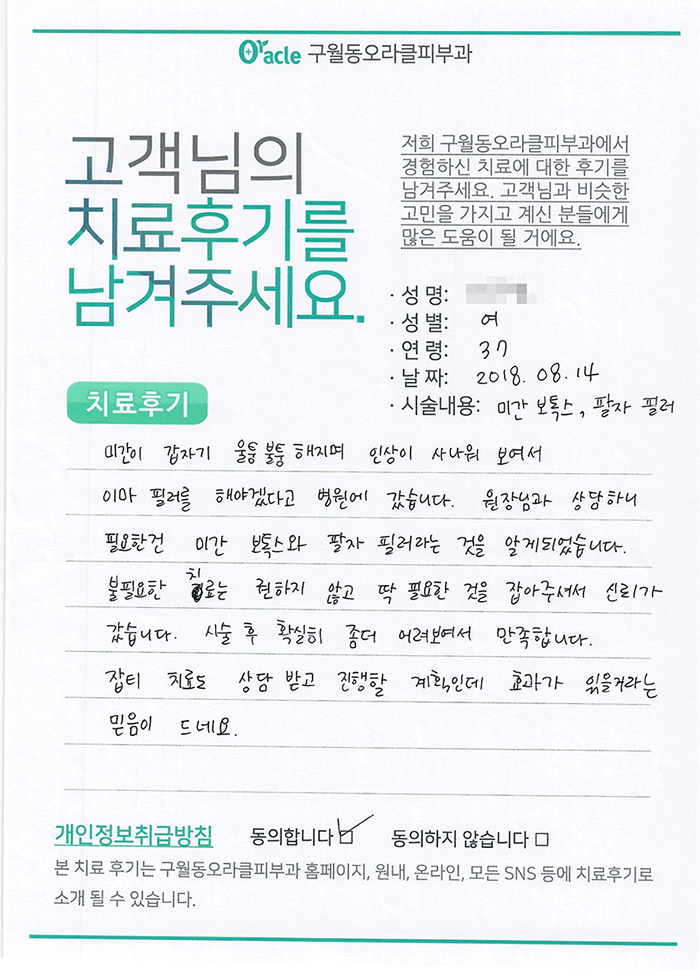 Oracle 구월동오라클피부과
고객님의
치료후기를
남겨주세요.
저희 구월동오라클피부과에서
경험하신 치료에 대한 후기를
남겨주세요. 고객님과 비슷한
고민을 가지고 계신 분들에게
많은 도움이 될 거에요.
· 성 명:
· 성 별: 여
· 연 령: 37
· 날 짜: 2018. 08. 14
· 시술내용: 미간 보톡스, 팔자 필러
치료후기
미간이 갑자기 울퉁 불퉁 해지며 인상이 사나워 보여서
이마 필러를 해야겠다고 병원에 갔습니다. 원장님과 상담하니
필요한건 미간 보톡스와 팔자 필러라는 것을 알게되었습니다.
불필요한 치료는 권하지 않고 딱 필요한 것을 잡아주셔서 신뢰가
갔습니다. 시술 후 확실히 좀더 어려보여서 만족합니다.
잡티 치료도 상담 받고 진행할 계획인데 효과가 있을거라는
믿음이 드네요.
개인정보취급방침 동의합니다 동의하지 않습니다
본 치료 후기는 구월동오라클피부과 홈페이지, 원내, 온라인, 모든 SNS 등에 치료후기로
소개 될 수 있습니다.